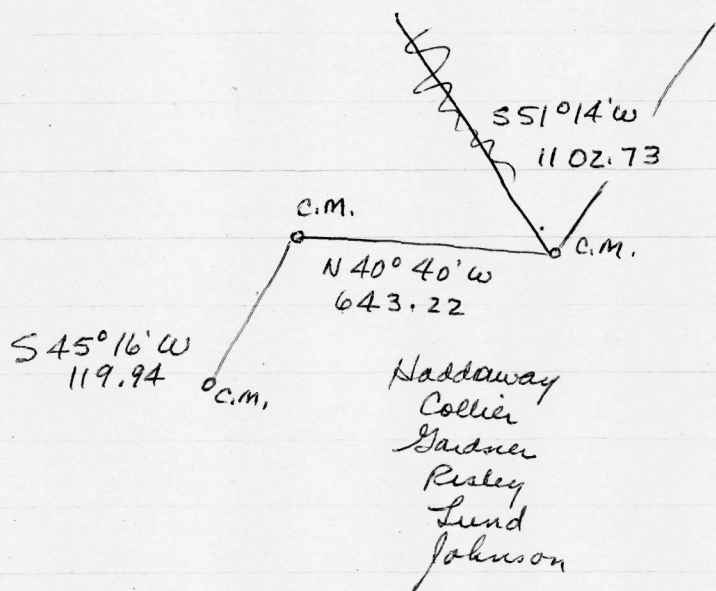 S 51° 14' W
1102.73
C.M.
C.M.
N 40° 40' W
643.22
S 45° 16' W
119.94
C.M.
Haddaway
Collier
Gardner
Risley
Lund
Johnson